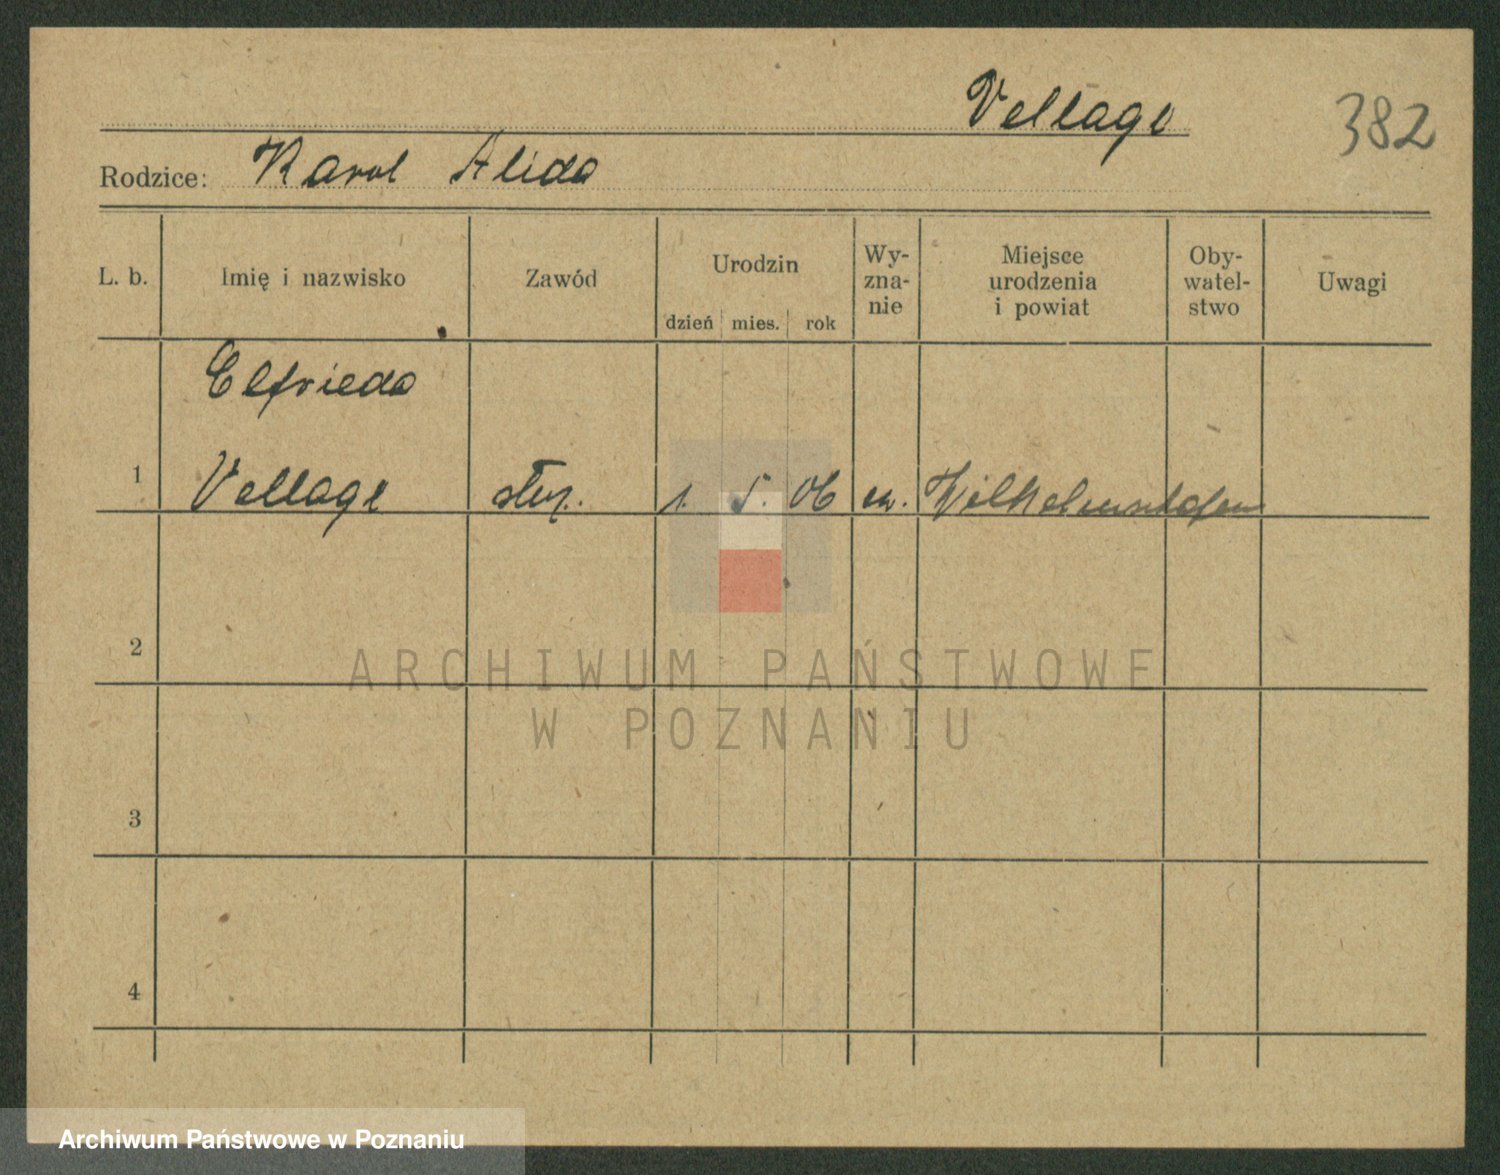 Vellage
382
Rodzice: Karol Alida
L. b. Imię i nazwisko Zawód Urodzin dzień mies. rok Wyznanie Miejsce urodzenia i powiat Obywatelstwo Uwagi
Elfrieda
1 Vellage służ. 1. 5. 06 ew. Wilhelmshafen
2
ARCHIWUM PAŃSTWOWE
W POZNANIU
3
4
Archiwum Państwowe w Poznaniu